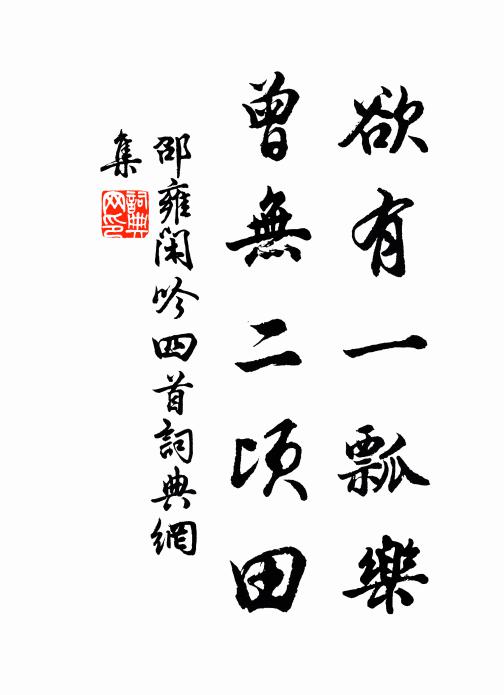 欲有一瓢樂
曾無二頃田
邵雍閑吟四首詞典網
集
詞典
网印